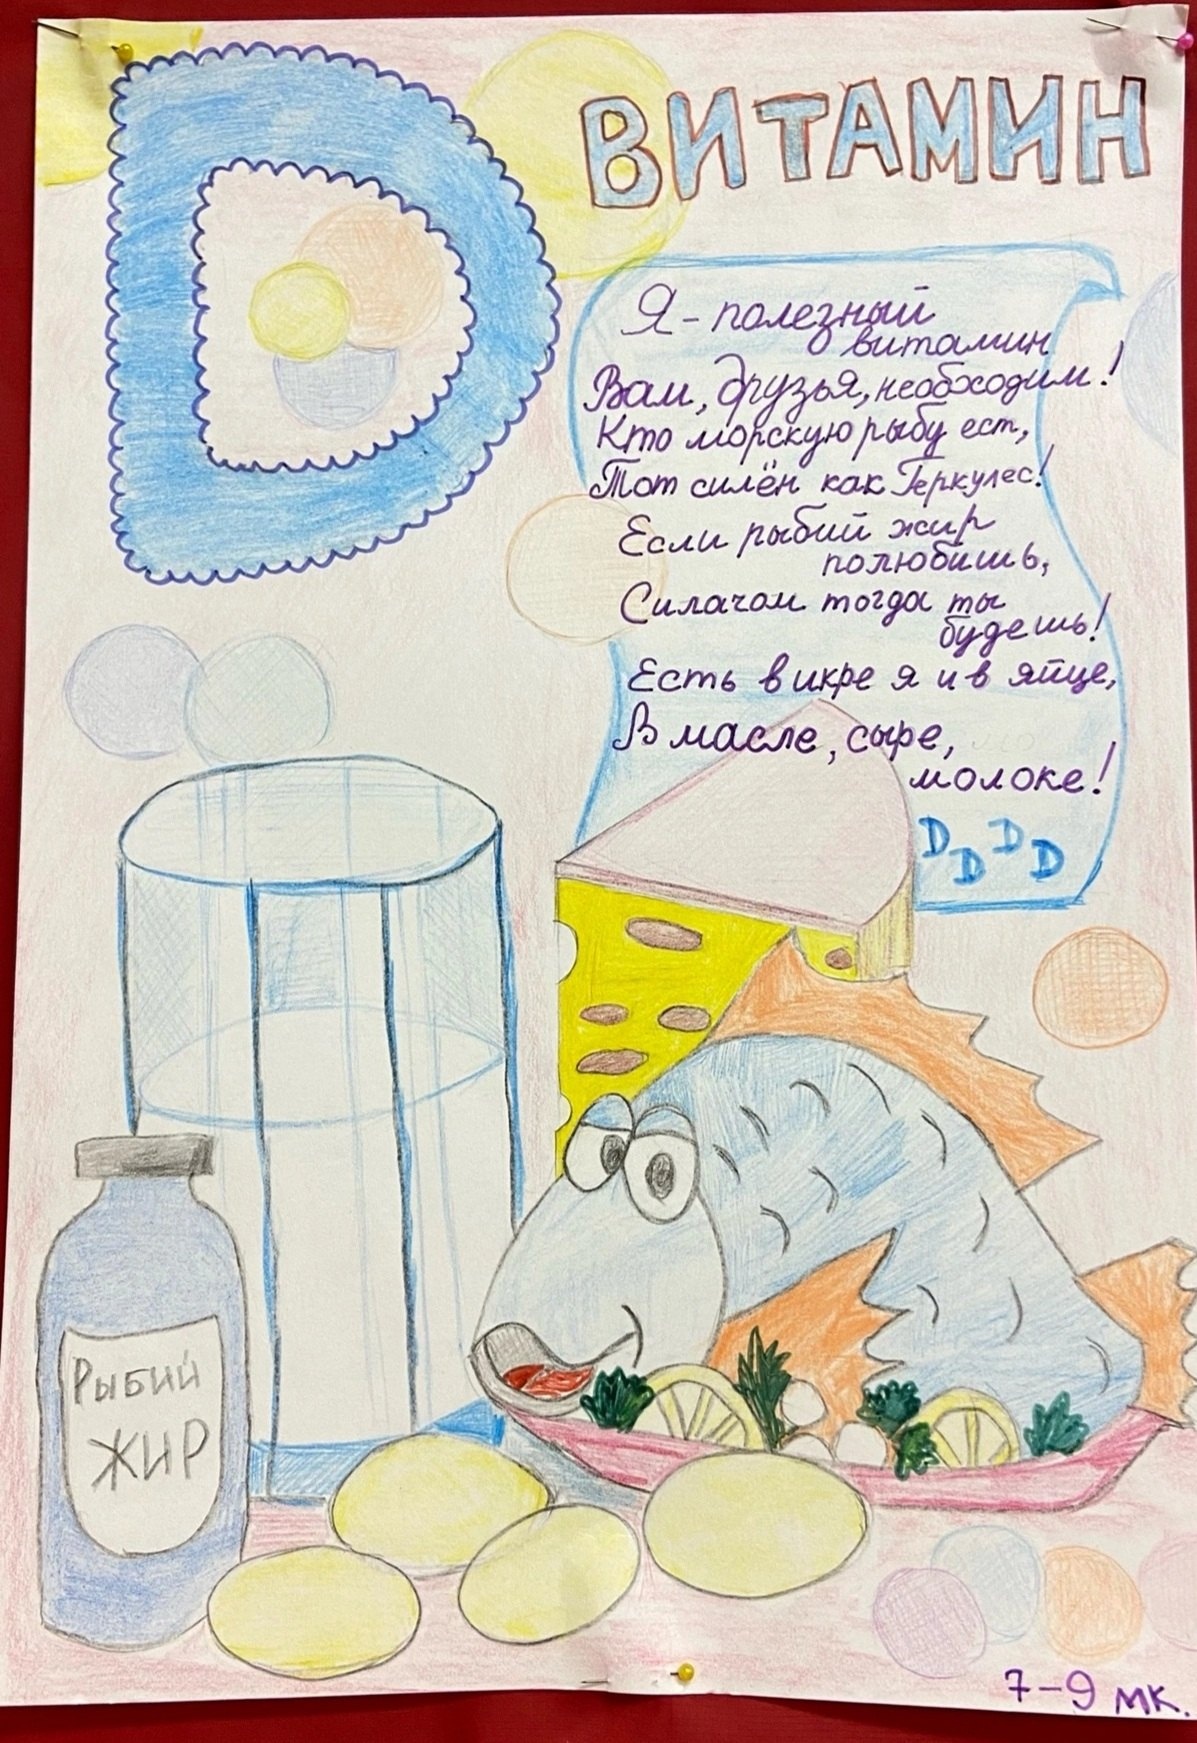 D
ВИТАМИН
Я - полезный
витамин
Вам, друзья, необходим!
Кто морскую рыбу ест,
Тот силён как Геркулес!
Если рыбий жир
полюбишь,
Силачом тогда ты
будешь!
Есть в икре я и в яйце,
В масле, сыре,
молоке!
D D D D
Рыбий
ЖИР
7-9 мк.